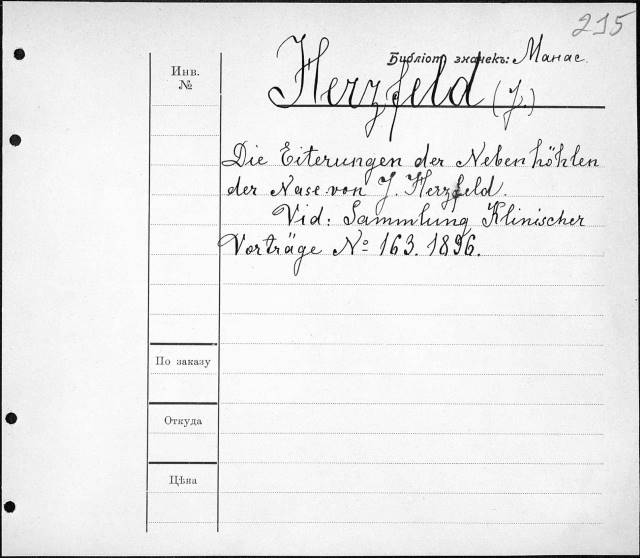 215
Библіот. значекъ: Манас.
Инв.
№
Herzfeld (J.)
Die Eiterungen der Nebenhöhlen
der Nase von J. Herzfeld.
Vid: Sammlung Klinischer
Vorträge № 163. 1896.
По заказу
Откуда
Цѣна